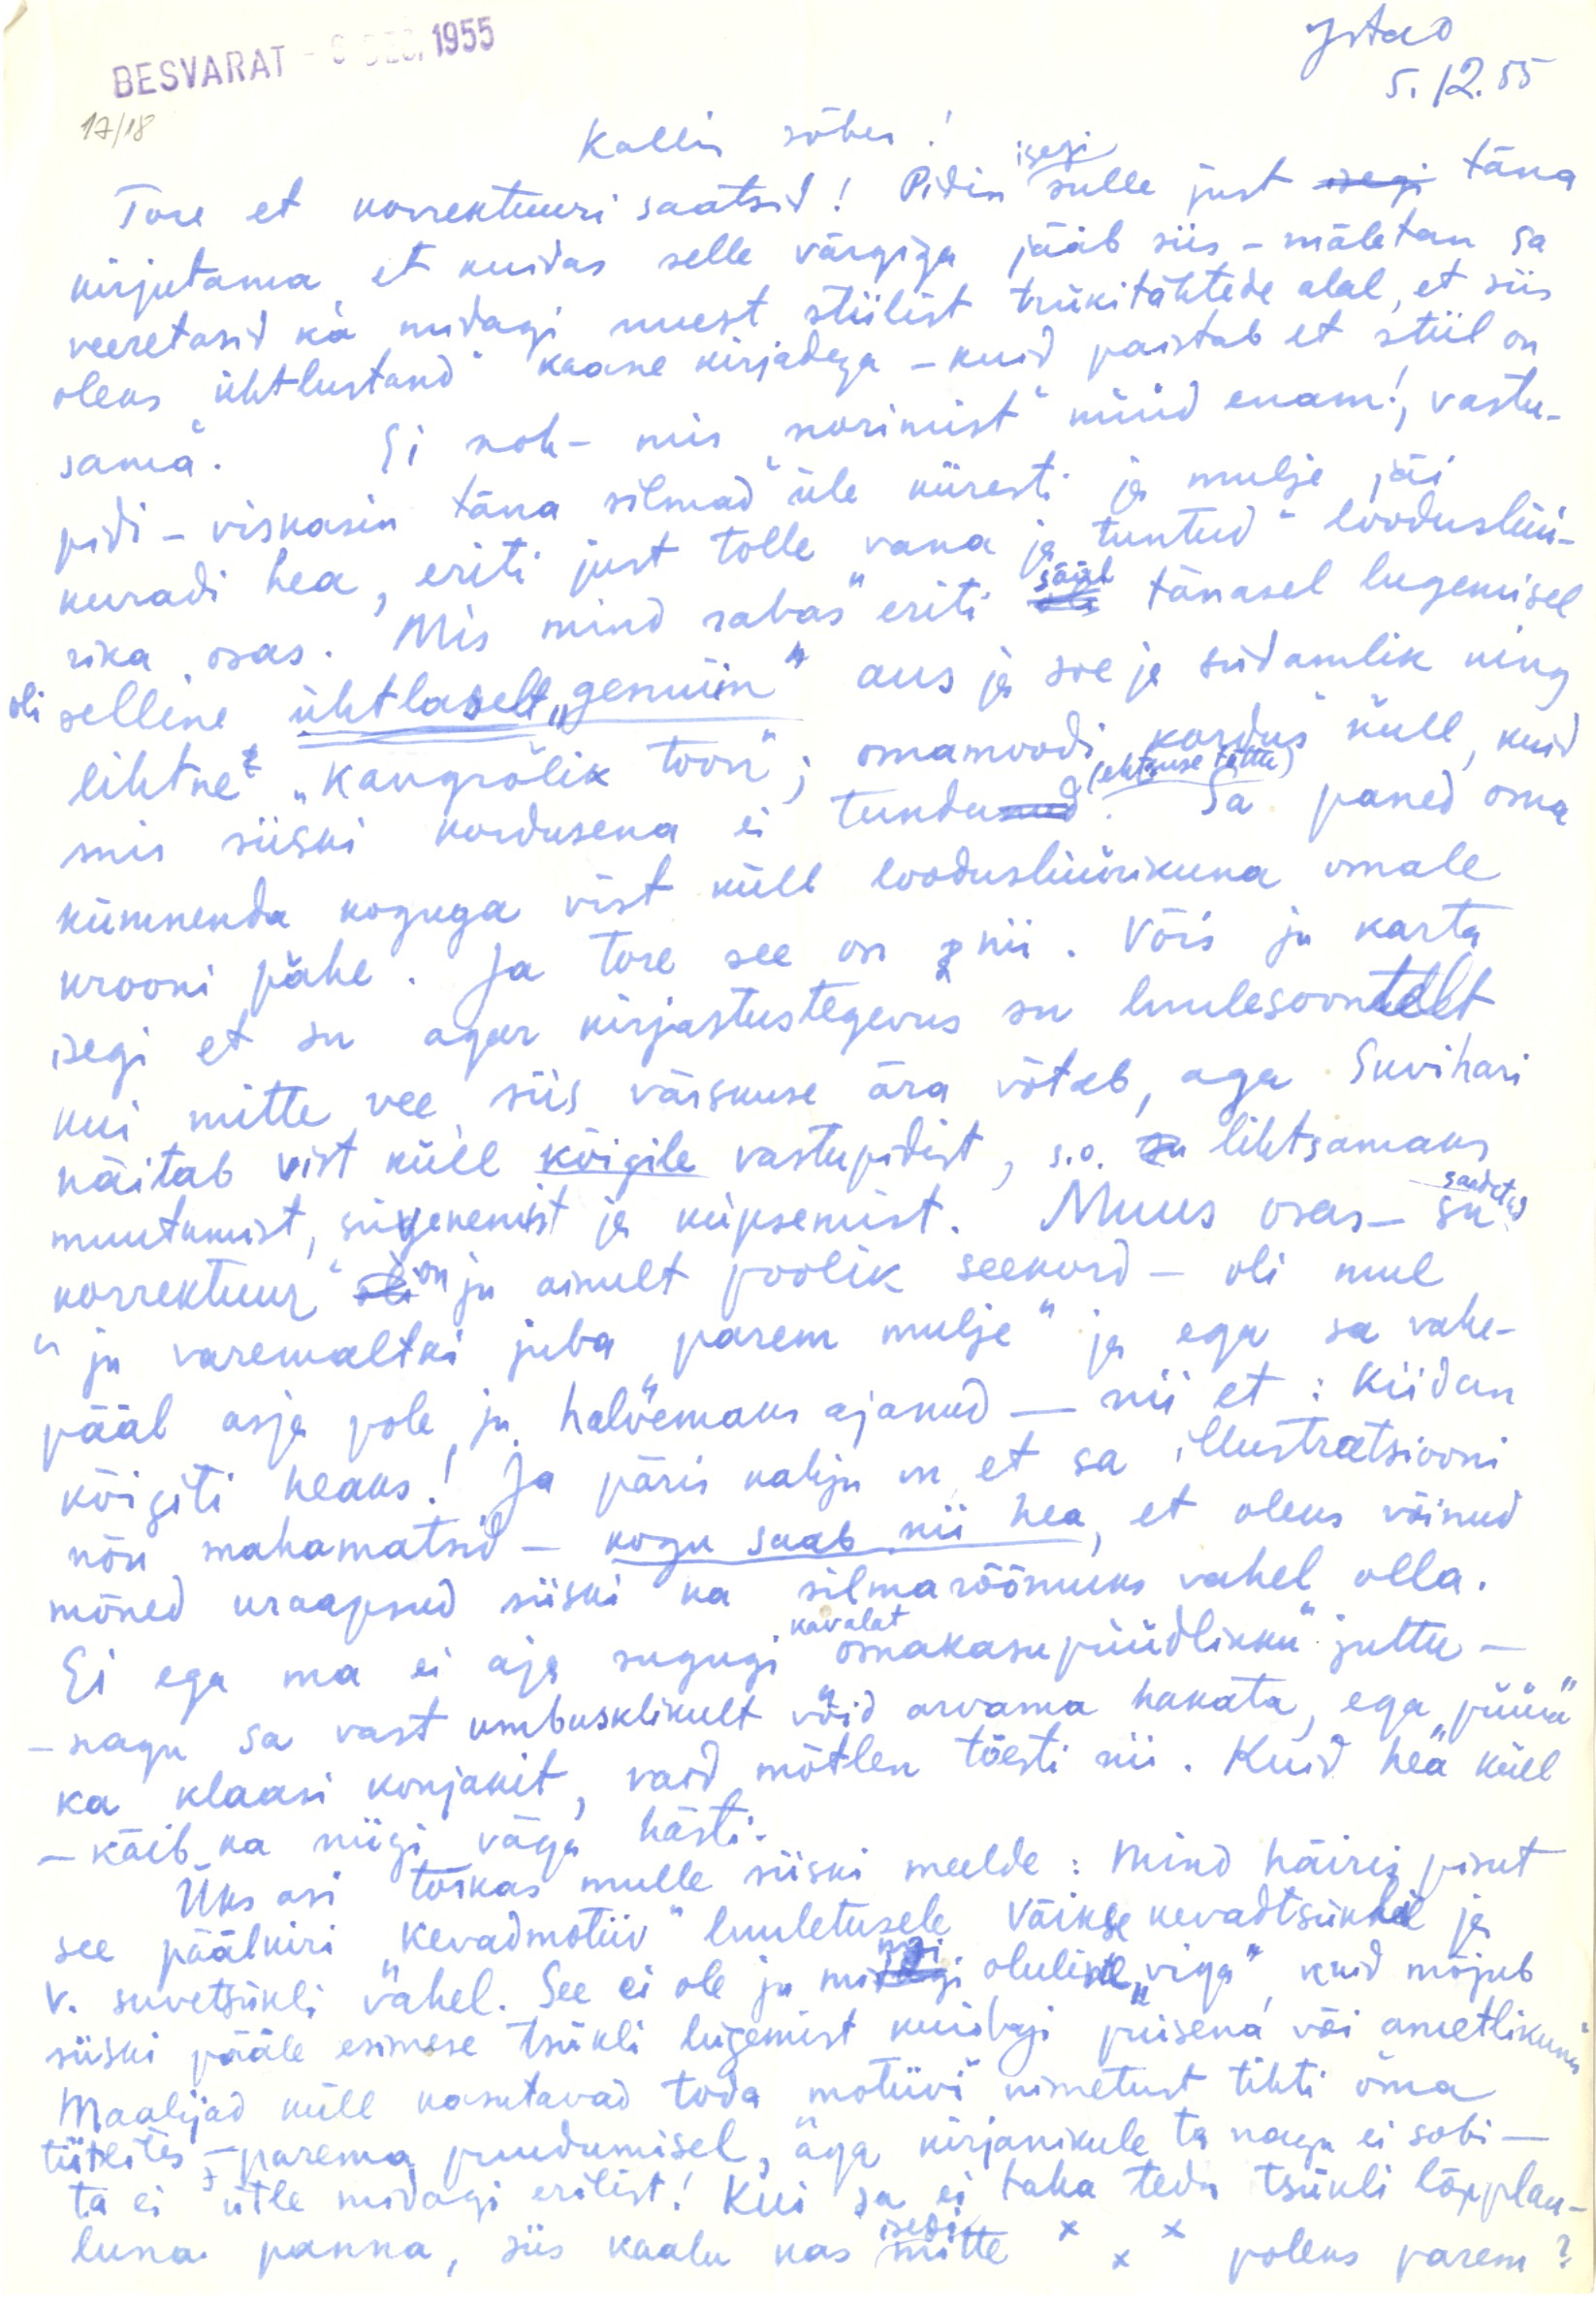 BESVARAT - 6 DEC. 1955
Ystad
5. 12. 55
17/18
Kallis sõber!
Tore et korrektuuri saatsid! Pidin isegi sulle just isegi täna
kirjutama et kuidas selle värgiga jääb siis – mäletan sa
veeretasid ka midagi uuest stiilist trükitähtede alal, et siis
oleks „ühtlustand" kaane kirjadega – kuid paistab et stiil on
sama. Ei noh – mis „norimist" nüüd enam!, vastu-
pidi – viskasin täna silmad üle kiiresti ja mulje jäi
kuradi hea, eriti just tolle „vana ja tuntud" looduslüü-
rika osas. Mis mind „rabas" eriti sääl tänasel lugemisel
oli selline ühtlaselt „genuiin" aus ja soe ja südamlik ning
lihtne „Kangrolik toon"; omamoodi „kordus" küll, kuid
mis siiski kordusena ei tundu (ehtsuse tõttu). Sa paned oma
kümnenda koguga vist küll looduslüürikuna omale
krooni pähe. Ja tore see on nii. Võis ju karta
isegi et su agar kirjastustegevus su luulesoontelt
kui mitte vee siis värskuse ära võtab, aga Suvihari
näitab vist küll kõigile vastupidist, s.o. lihtsamaks
muutumist, sügenemist ja küpsemist. Muus osas – su saadetud
korrektuur on ju ainult poolik seekord – oli mul
ju varemaltki juba „parem mulje" ja ega sa vahe-
pääl asja pole ju halvemaks ajanud — nii et: Kiidan
kõigiti heaks! Ja päris kahju on et sa illustratsiooni
nõu mahamatsid – kogu saab nii hea, et oleks võinud
mõned kraapsud siiski ka silmarõõmuks vahel olla.
Ei ega ma ei aja sugugi kavalat „omakasupüüdlikku" juttu –
– nagu sa vast umbusklikult võid arvama hakata, ega „püüa"
ka klaasi konjakit, vaid mõtlen tõesti nii. Kuid hea küll
– käib ka niigi väga hästi.
Üks asi torkas mulle siiski meelde: Mind häiris pisut
see päälkiri „Kevadmotiiv" luuletusele väikse kevadtsükli ja
v. suvetsükli vahel. See ei ole ju mingi oluline „viga", kuid mõjub
siiski pääle esimese tsükli lugemist kuidagi „puisena" või ametlikuna
Maalijad küll kasutavad toda „motiivi" nimetust tihti oma
tiitlites – parema puudumisel, aga kirjanikule ta nagu ei sobi –
ta ei ütle midagi erilist! Kui sa ei taha teda tsükli lõpplau-
luna panna, siis kaalu kas isegi mitte x x x poleks parem?